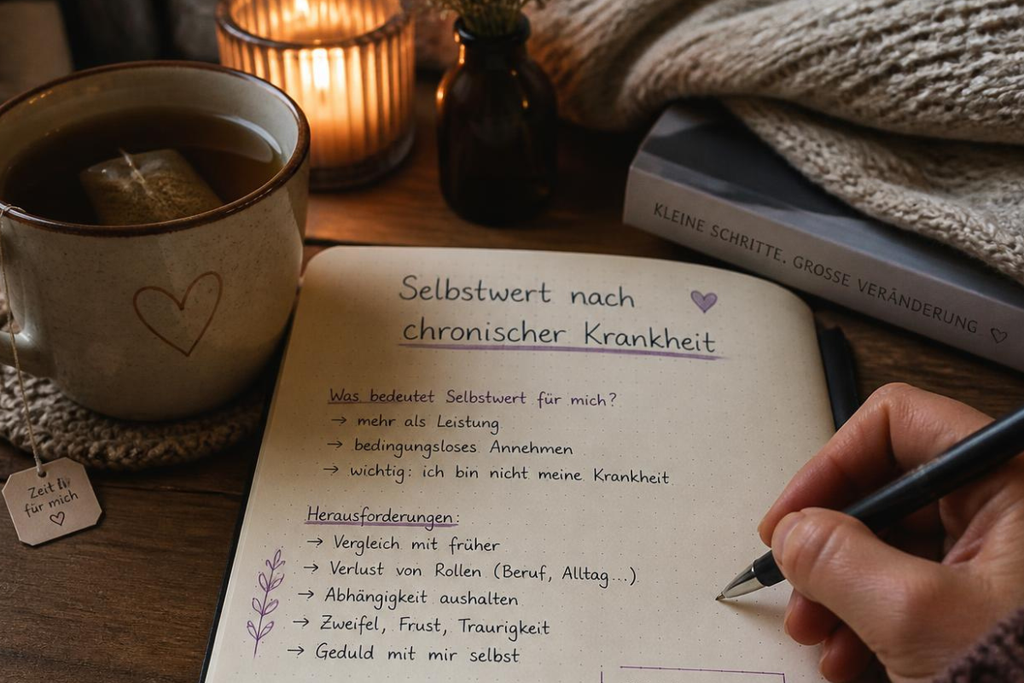 KLEINE SCHRITTE. GROSSE VERÄNDERUNG
Selbstwert nach
chronischer Krankheit
Was bedeutet Selbstwert für mich?
→ mehr als Leistung
→ bedingungsloses Annehmen
→ wichtig: ich bin nicht meine Krankheit
Herausforderungen:
→ Vergleich mit früher
→ Verlust von Rollen (Beruf, Alltag...)
→ Abhängigkeit aushalten
→ Zweifel, Frust, Traurigkeit
→ Geduld mit mir selbst
Zeit
für mich